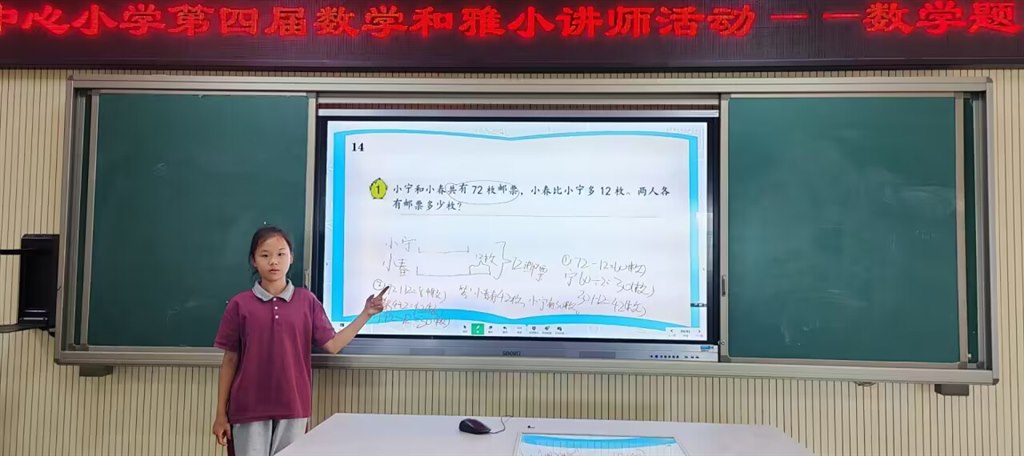 中心小学第四届数学和雅小讲师活动－－数学题
14
1 小宁和小春共有 72 枚邮票，小春比小宁多 12 枚。两人各
有邮票多少枚？
小宁
小春
12枚
72邮票
① 72-12=60(枚)
宁 60÷2=30(枚)
30+12=42(枚)
② 72+12=84(枚)
84÷2=42(枚)
42-12=30(枚)
答:小春有42枚,小宁有30枚。